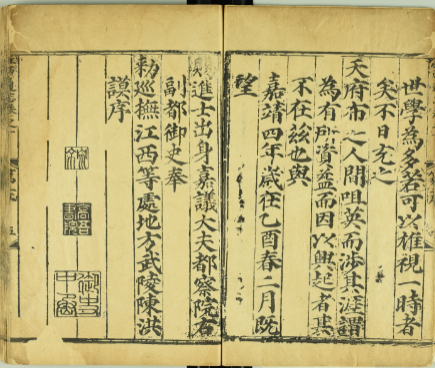 世學為多若可以雄視一時者
矣不日充之
天府布之人間咀英而涉其涯謂
為有所資益而因以興起者其
不在茲也與
嘉靖四年歲在乙酉春二月既
望
進士出身嘉議大夫都察院右
副都御史奉
勑巡撫江西等處地方武陵陳洪
謨序